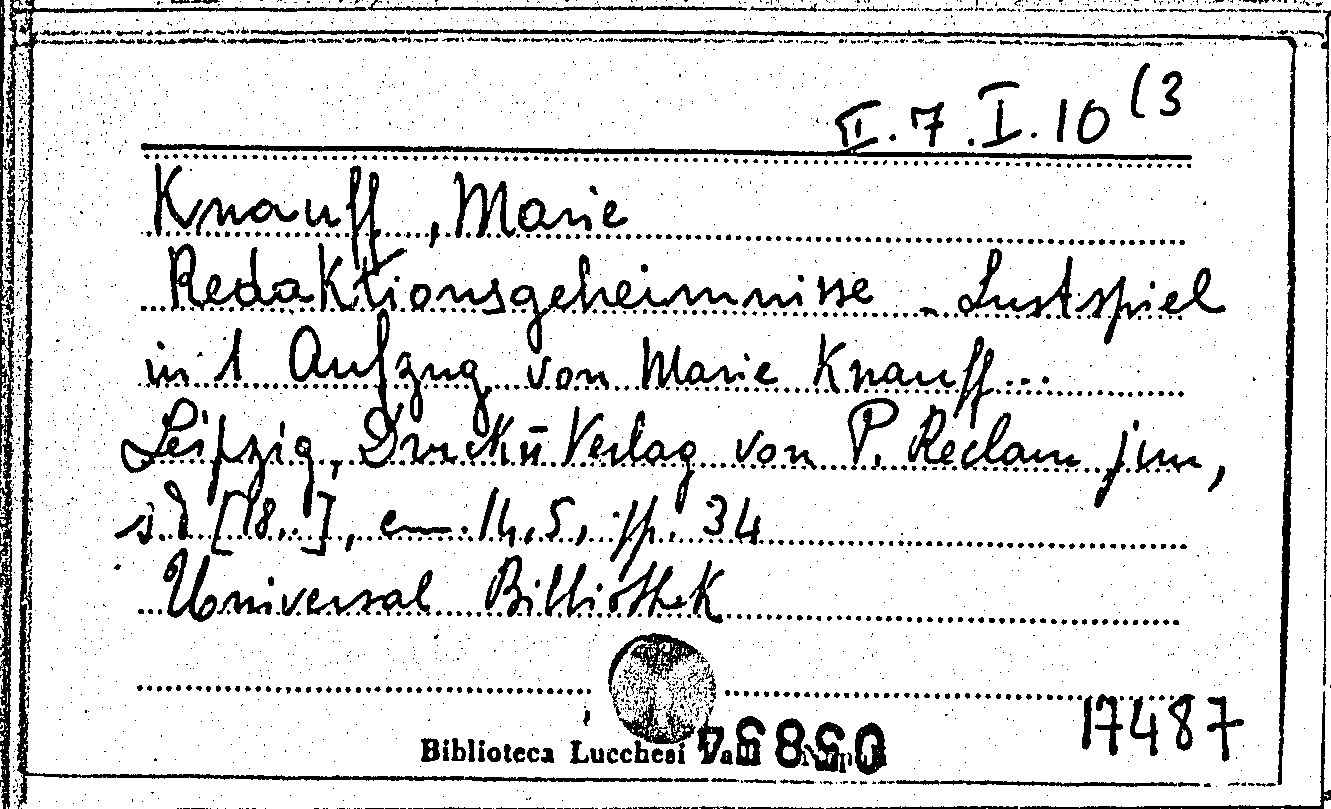 II.7.I.10(3
Knauff, Marie
Redaktionsgeheimnisse - Lustspiel
in 1 Aufzug von Marie Knauff...
Leipzig, Druck ū Verlag von P. Reclam jun,
s.d [18..], cm. 14,5, pp. 34
Universal Bibliothek
17487
Biblioteca Lucchesi